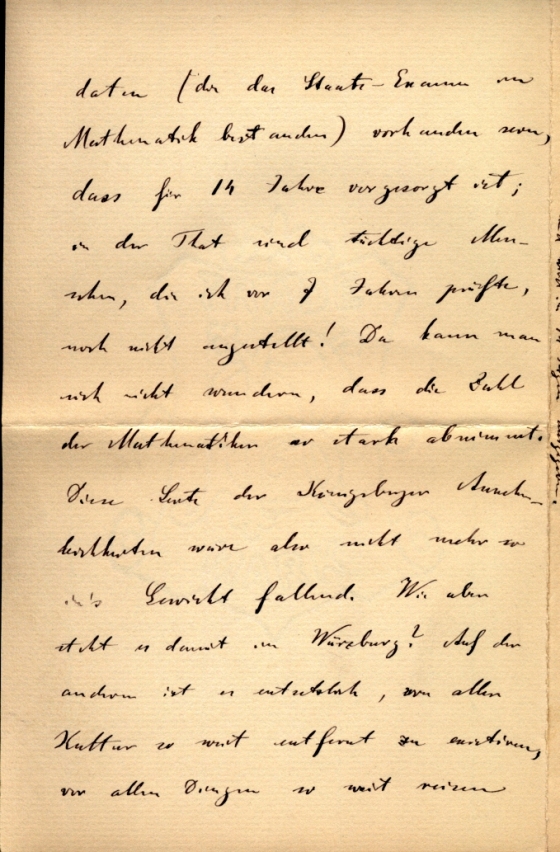 daten (die das Staats-Examen in
Mathematik bestanden) vorhanden seien,
dass für 14 Jahre vorgesorgt ist;
in der That sind tüchtige Men-
schen, die ich vor 7 Jahren prüfte,
noch nicht angestellt! Da kann man
sich nicht wundern, dass die Zahl
der Mathematiker so stark abnimmt.
Diese Seite der Königsberger Annehm-
lichkeiten wäre also nicht mehr so
in's Gewicht fallend. Wie aber
steht es damit in Würzburg? Auf der
anderen ist es entsetzlich, von aller
Kultur so weit entfernt zu existiren,
vor allen Dingen so weit reisen